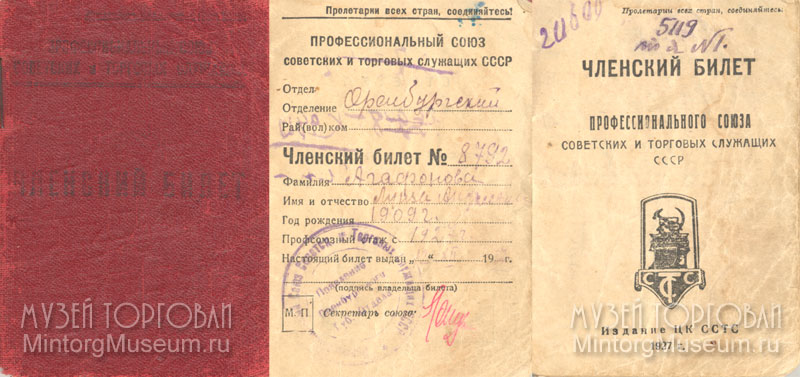 ЧЛЕНСКИЙ БИЛЕТ
Пролетарии всех стран, соединяйтесь!
ПРОФЕССИОНАЛЬНЫЙ СОЮЗ
СОВЕТСКИХ И ТОРГОВЫХ СЛУЖАЩИХ СССР
Отдел
Отделение Оренбургский
Рай(вол)ком
Членский билет № 8792
Фамилия Агафонова
Имя и отчество
Год рождения 1909 г.
Профсоюзный стаж с
Настоящий билет выдан „ “ 19 г.
(подпись владельца билета)
М. П. Секретарь союза:
Пролетарии всех стран, соединяйтесь.
20600
5119
ЧЛЕНСКИЙ БИЛЕТ
ПРОФЕССИОНАЛЬНОГО СОЮЗА
СОВЕТСКИХ И ТОРГОВЫХ СЛУЖАЩИХ
СССР
ССТС
Издание ЦК ССТС
1927 г.
МУЗЕЙ ТОРГОВЛИ
MintorgMuseum.ru
МУЗЕЙ ТОРГОВЛИ
MintorgMuseum.ru